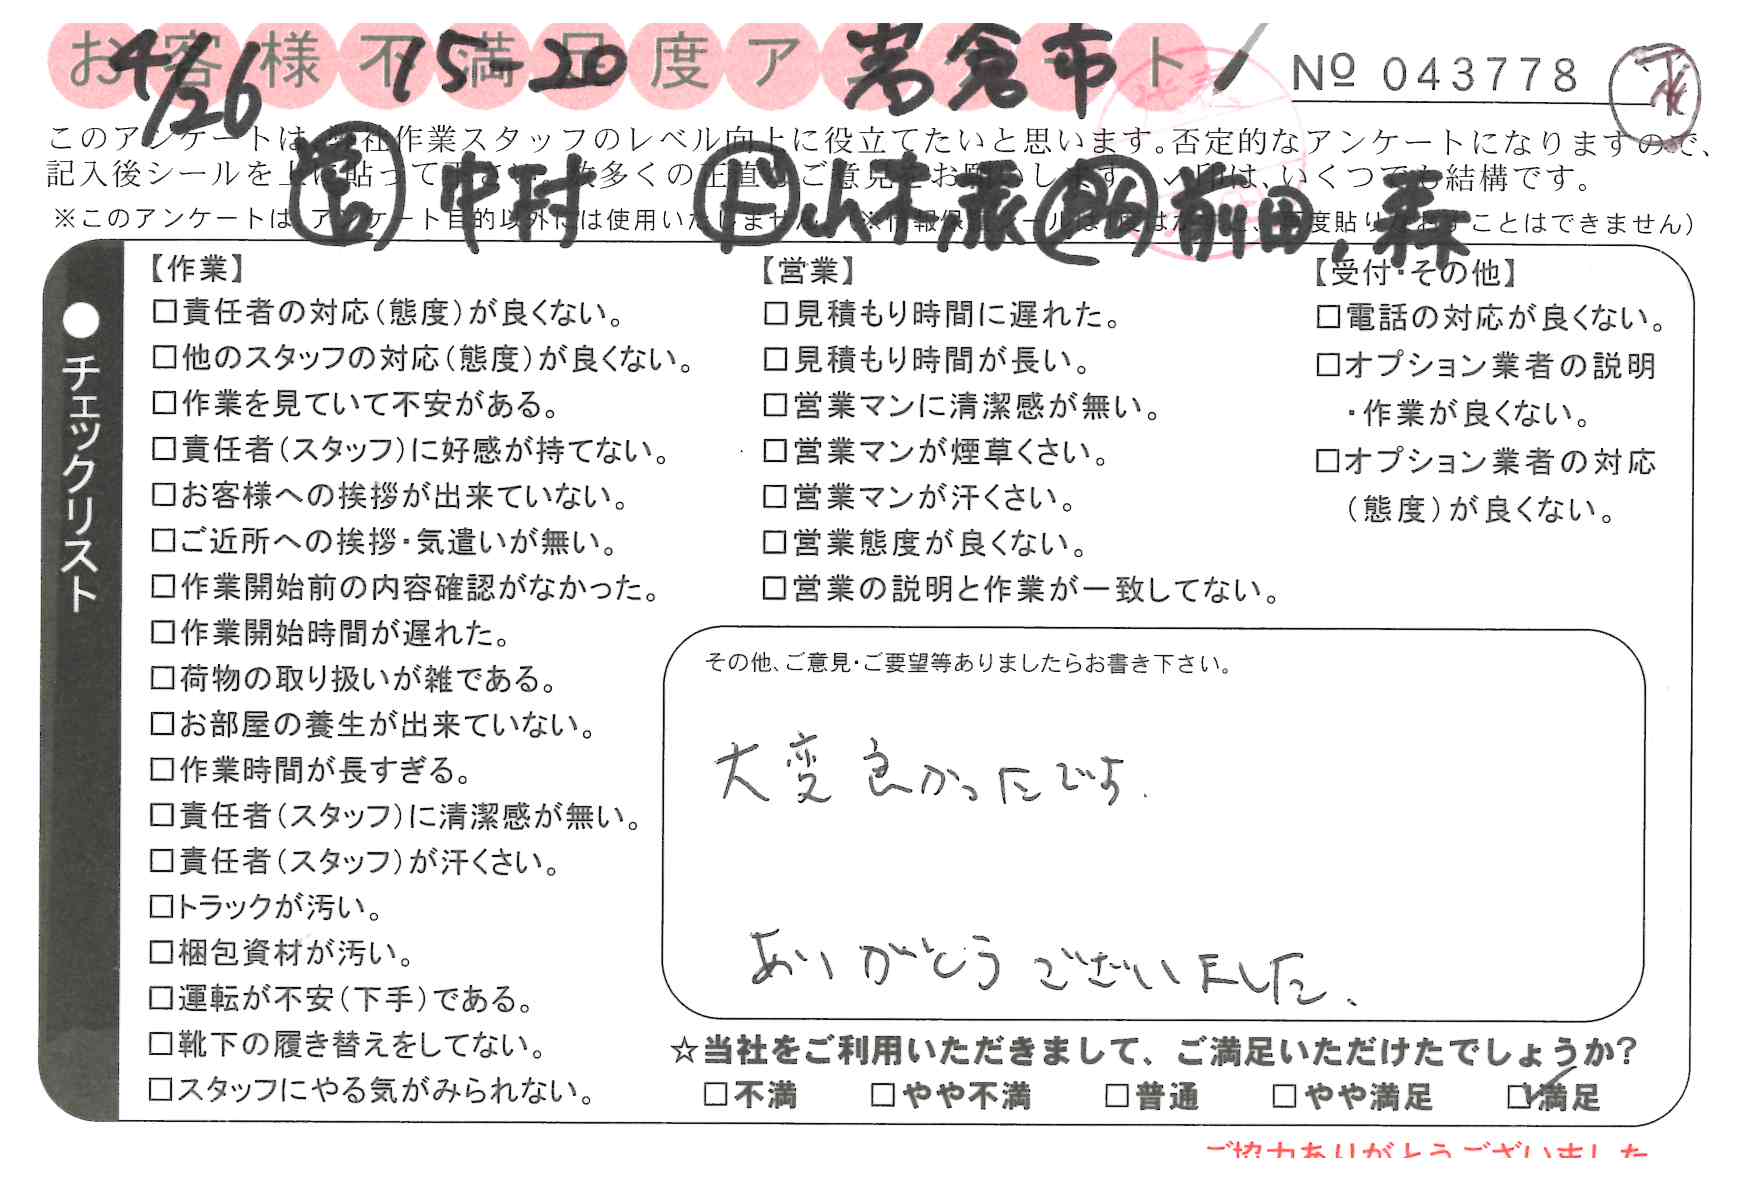 お客様不満足度アンケート
4/26 15-20 岩倉市
Nº 043778
このアンケートは、弊社作業スタッフのレベル向上に役立てたいと思います。否定的なアンケートになりますので、
記入後シールを上に貼って下さい。数多くの正直なご意見をお願いします。レ印は、いくつでも結構です。
営 中村 ド 山本 助 前田、森
【作業】
□責任者の対応(態度)が良くない。
□他のスタッフの対応(態度)が良くない。
□作業を見ていて不安がある。
□責任者(スタッフ)に好感が持てない。
□お客様への挨拶が出来ていない。
□ご近所への挨拶・気遣いが無い。
□作業開始前の内容確認がなかった。
□作業開始時間が遅れた。
□荷物の取り扱いが雑である。
□お部屋の養生が出来ていない。
□作業時間が長すぎる。
□責任者(スタッフ)に清潔感が無い。
□責任者(スタッフ)が汗くさい。
□トラックが汚い。
□梱包資材が汚い。
□運転が不安(下手)である。
□靴下の履き替えをしてない。
□スタッフにやる気がみられない。
【営業】
□見積もり時間に遅れた。
□見積もり時間が長い。
□営業マンに清潔感が無い。
□営業マンが煙草くさい。
□営業マンが汗くさい。
□営業態度が良くない。
□営業の説明と作業が一致してない。
【受付・その他】
□電話の対応が良くない。
□オプション業者の説明
・作業が良くない。
□オプション業者の対応
(態度)が良くない。
●チェックリスト
その他、ご意見・ご要望等ありましたらお書き下さい。
大変良かったです.
ありがとうございました、
☆当社をご利用いただきまして、ご満足いただけたでしょうか?
□不満 □やや不満 □普通 □やや満足 ☑満足
ご協力ありがとうございました